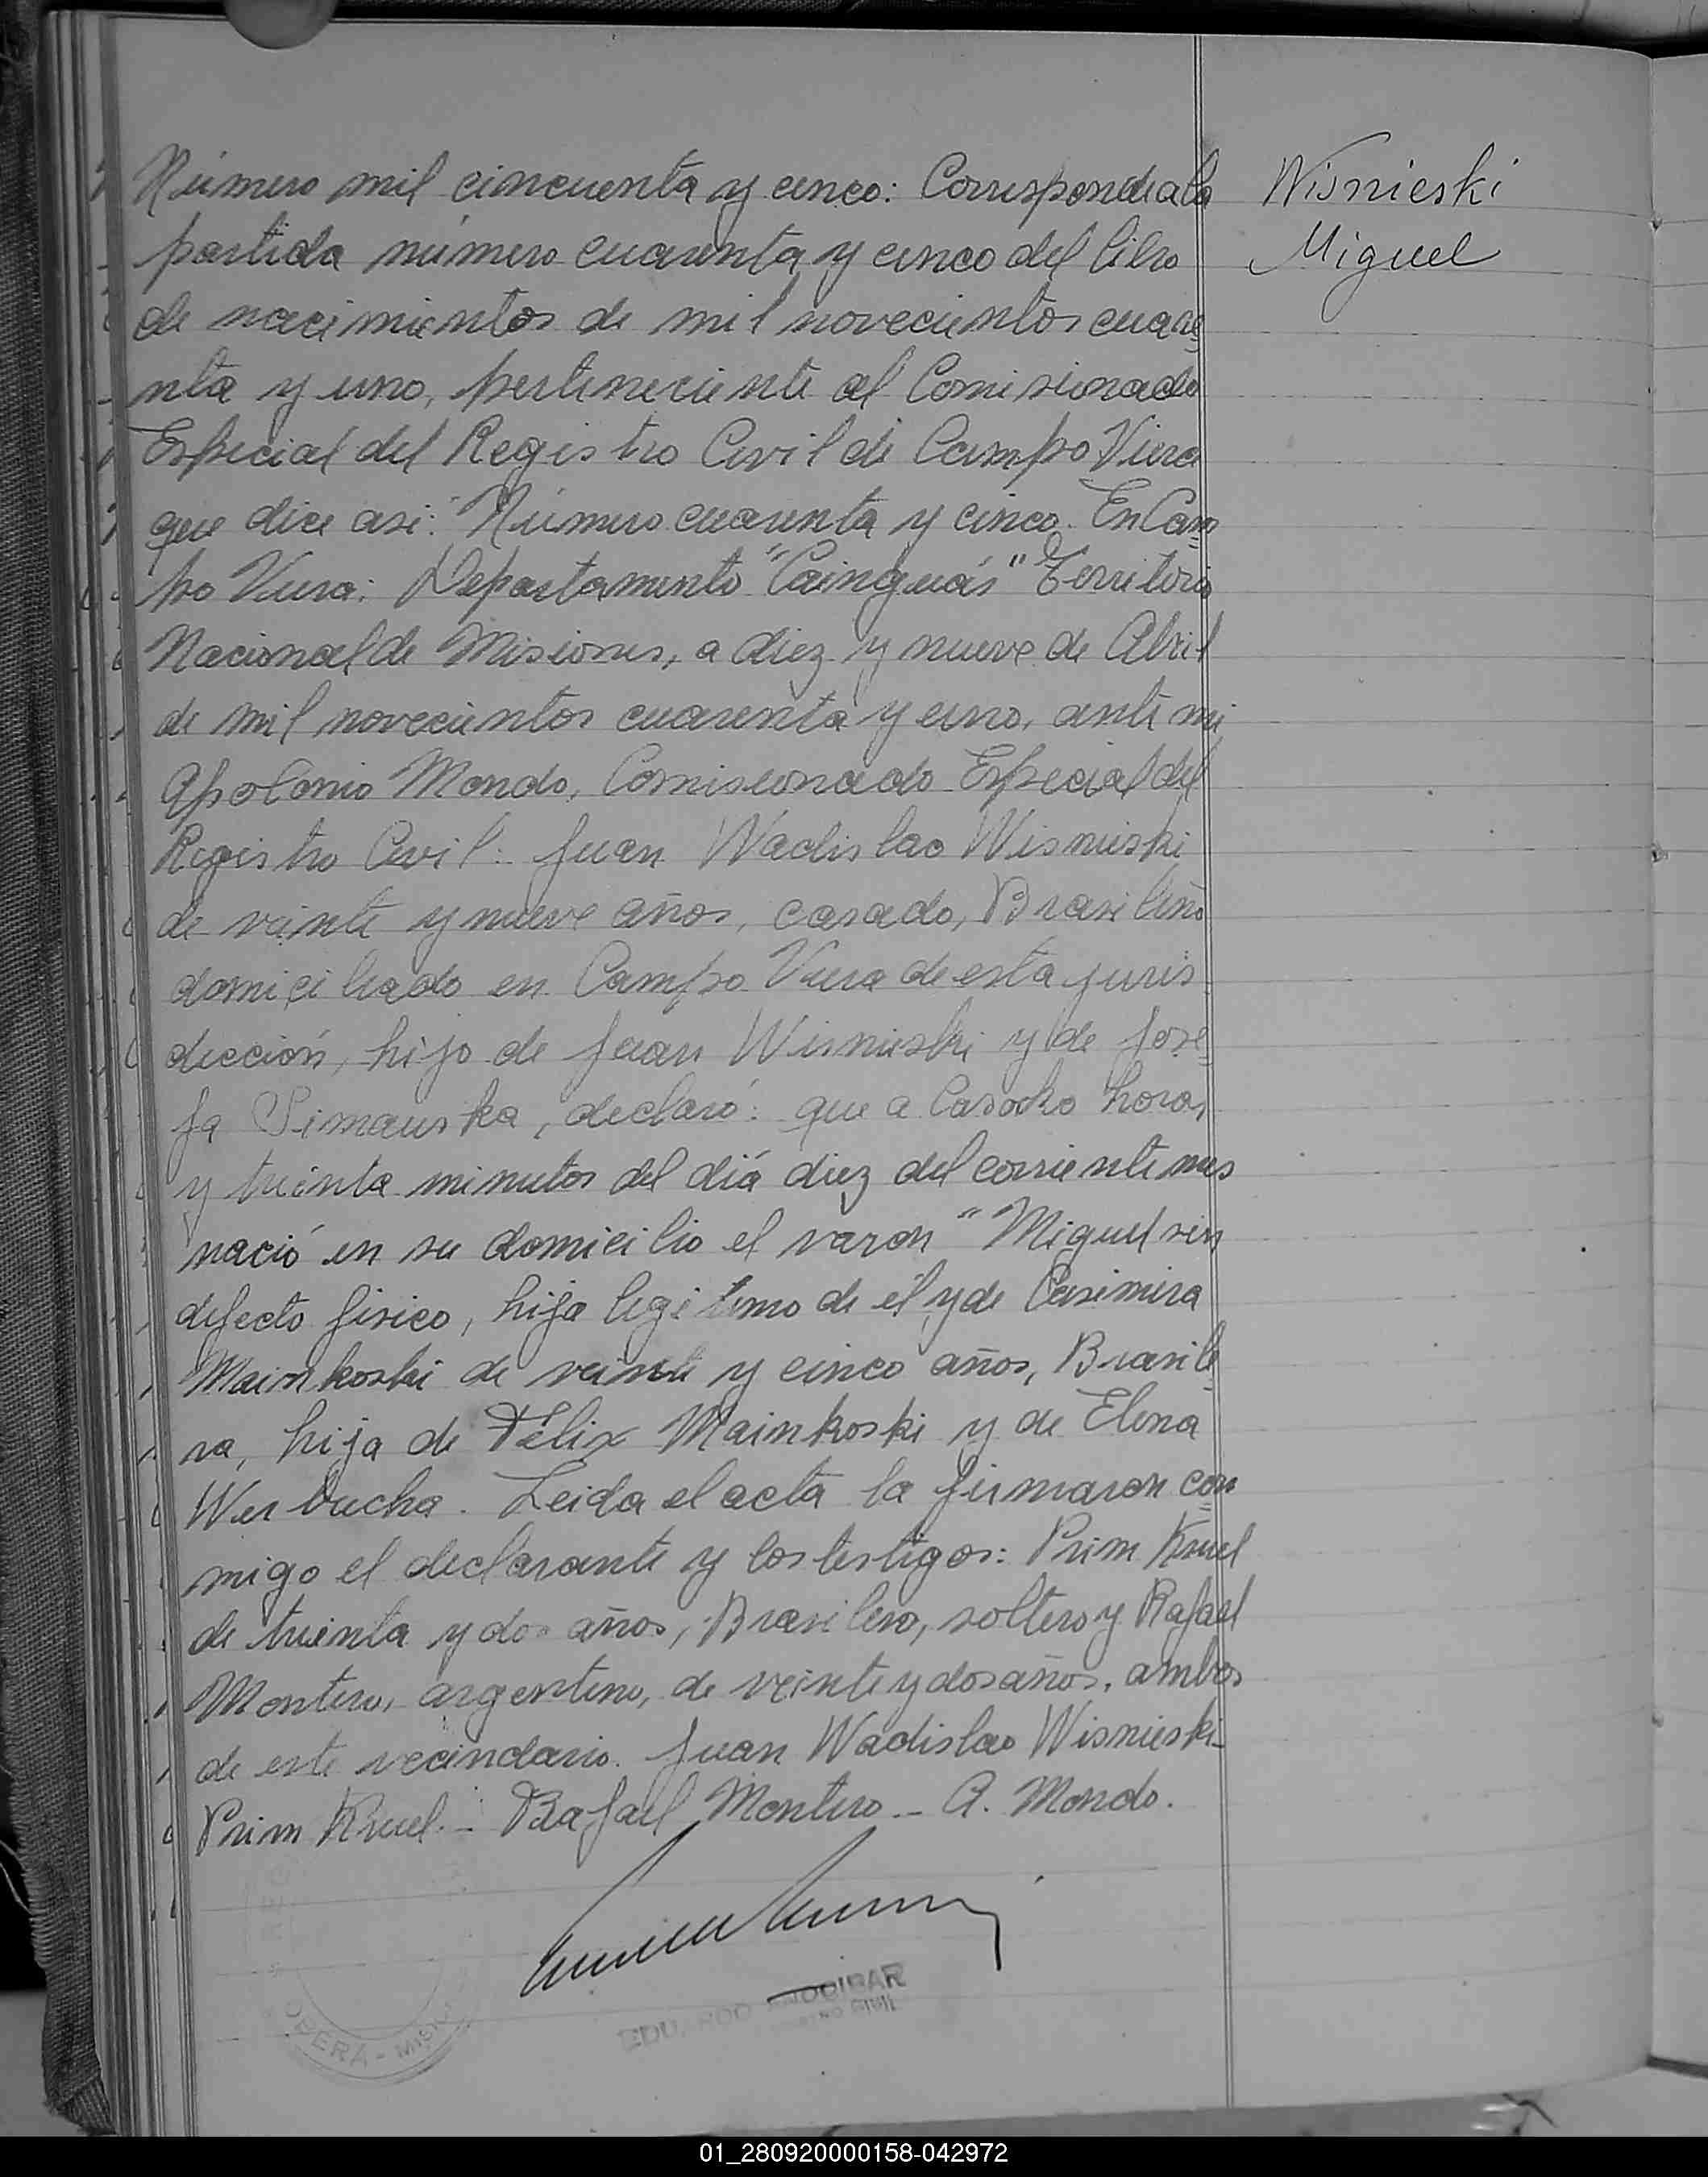 Número mil cincuenta y cinco: Corresponde a la
partida número cuarenta y cinco del libro
de nacimientos de mil novecientos cuare=
nta y uno, perteneciente al Comisionado
Especial del Registro Civil de Campo Viera
que dice asi: "Número cuarenta y cinco. En Cam=
po Viera: Departamento "Cainguás" Territorio
Nacional de Misiones, a diez y nueve de Abril
de mil novecientos cuarenta y uno, ante mi
Apolonio Mondo, Comisionado Especial del
Registro Civil: Juan Wadislao Wisnieski
de veinte y nueve años, casado, Brasileño
domiciliado en Campo Viera de esta juris
dicción, hijo de Juan Wisnieski y de Jose=
fa Simauska, declaró: que a las ocho horas
y treinta minutos del día diez del corriente mes
nació en su domicilio el varon "Miguel sin
defecto fisico, hijo legitimo de él y de Casimira
Mainkoski de veinte y cinco años, Brasile=
ra, hija de Félix Mainkoski y de Elena
Werbucha. Leida el acta la firmaron con=
migo el declarante y los testigos: Prim Kruel
de treinta y dos años, Brasilero, soltero y Rafael
Montero, argentino, de veinte y dos años, ambos
de este vecindario. Juan Wadislao Wisnieski-
Prim Kruel.- Rafael Montero.- A. Mondo.
Wisnieski
Miguel
OBERA - MIS
01_280920000158-042972